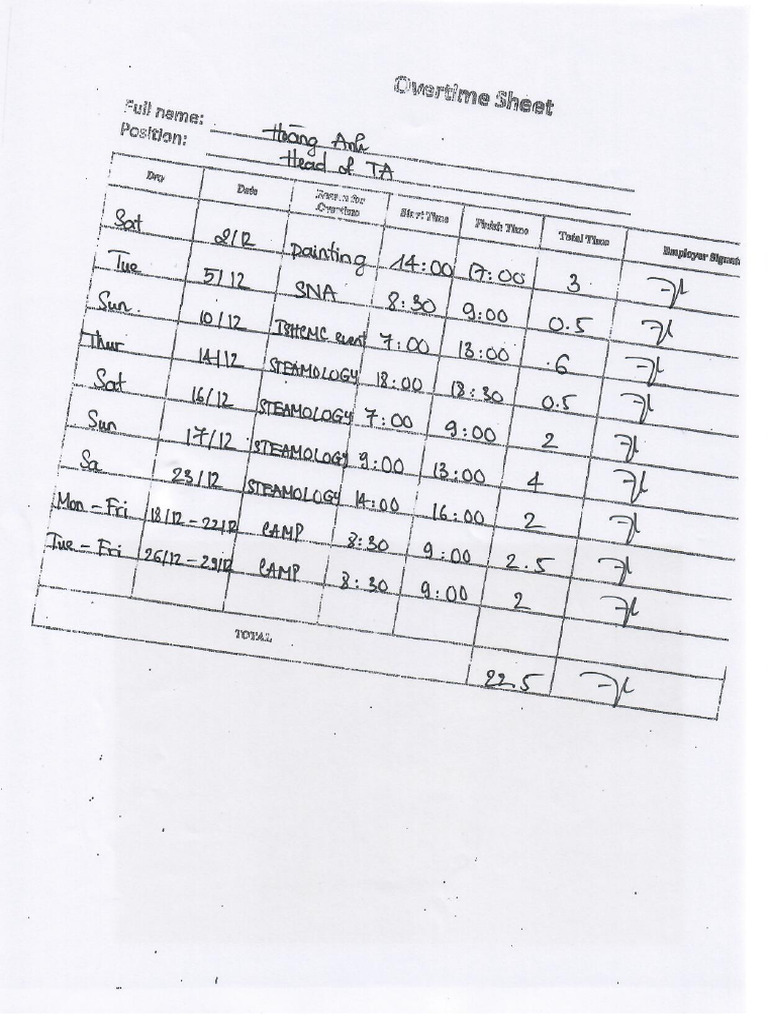 Overtime Sheet
Full name: Hoàng Anh
Position: Head of TA
Day Date Reason for Overtime Start Time Finish Time Total Time Employer
Sat 2/12 Painting 14:00 17:00 3
Tue 5/12 SNA 8:30 9:00 0.5
Sun. 10/12 event 7:00 13:00 6
Thur 14/12 STEAMOLOGY 18:00 18:30 0.5
Sat 16/12 STEAMOLOGY 7:00 9:00 2
Sun 17/12 STEAMOLOGY 9:00 13:00 4
Sa 23/12 STEAMOLOGY 14:00 16:00 2
Mon - Fri 18/12 - 22/12 CAMP 8:30 9:00 2.5
Tue - Fri 26/12 - 29/12 CAMP 8:30 9:00 2
TOTAL 22.5